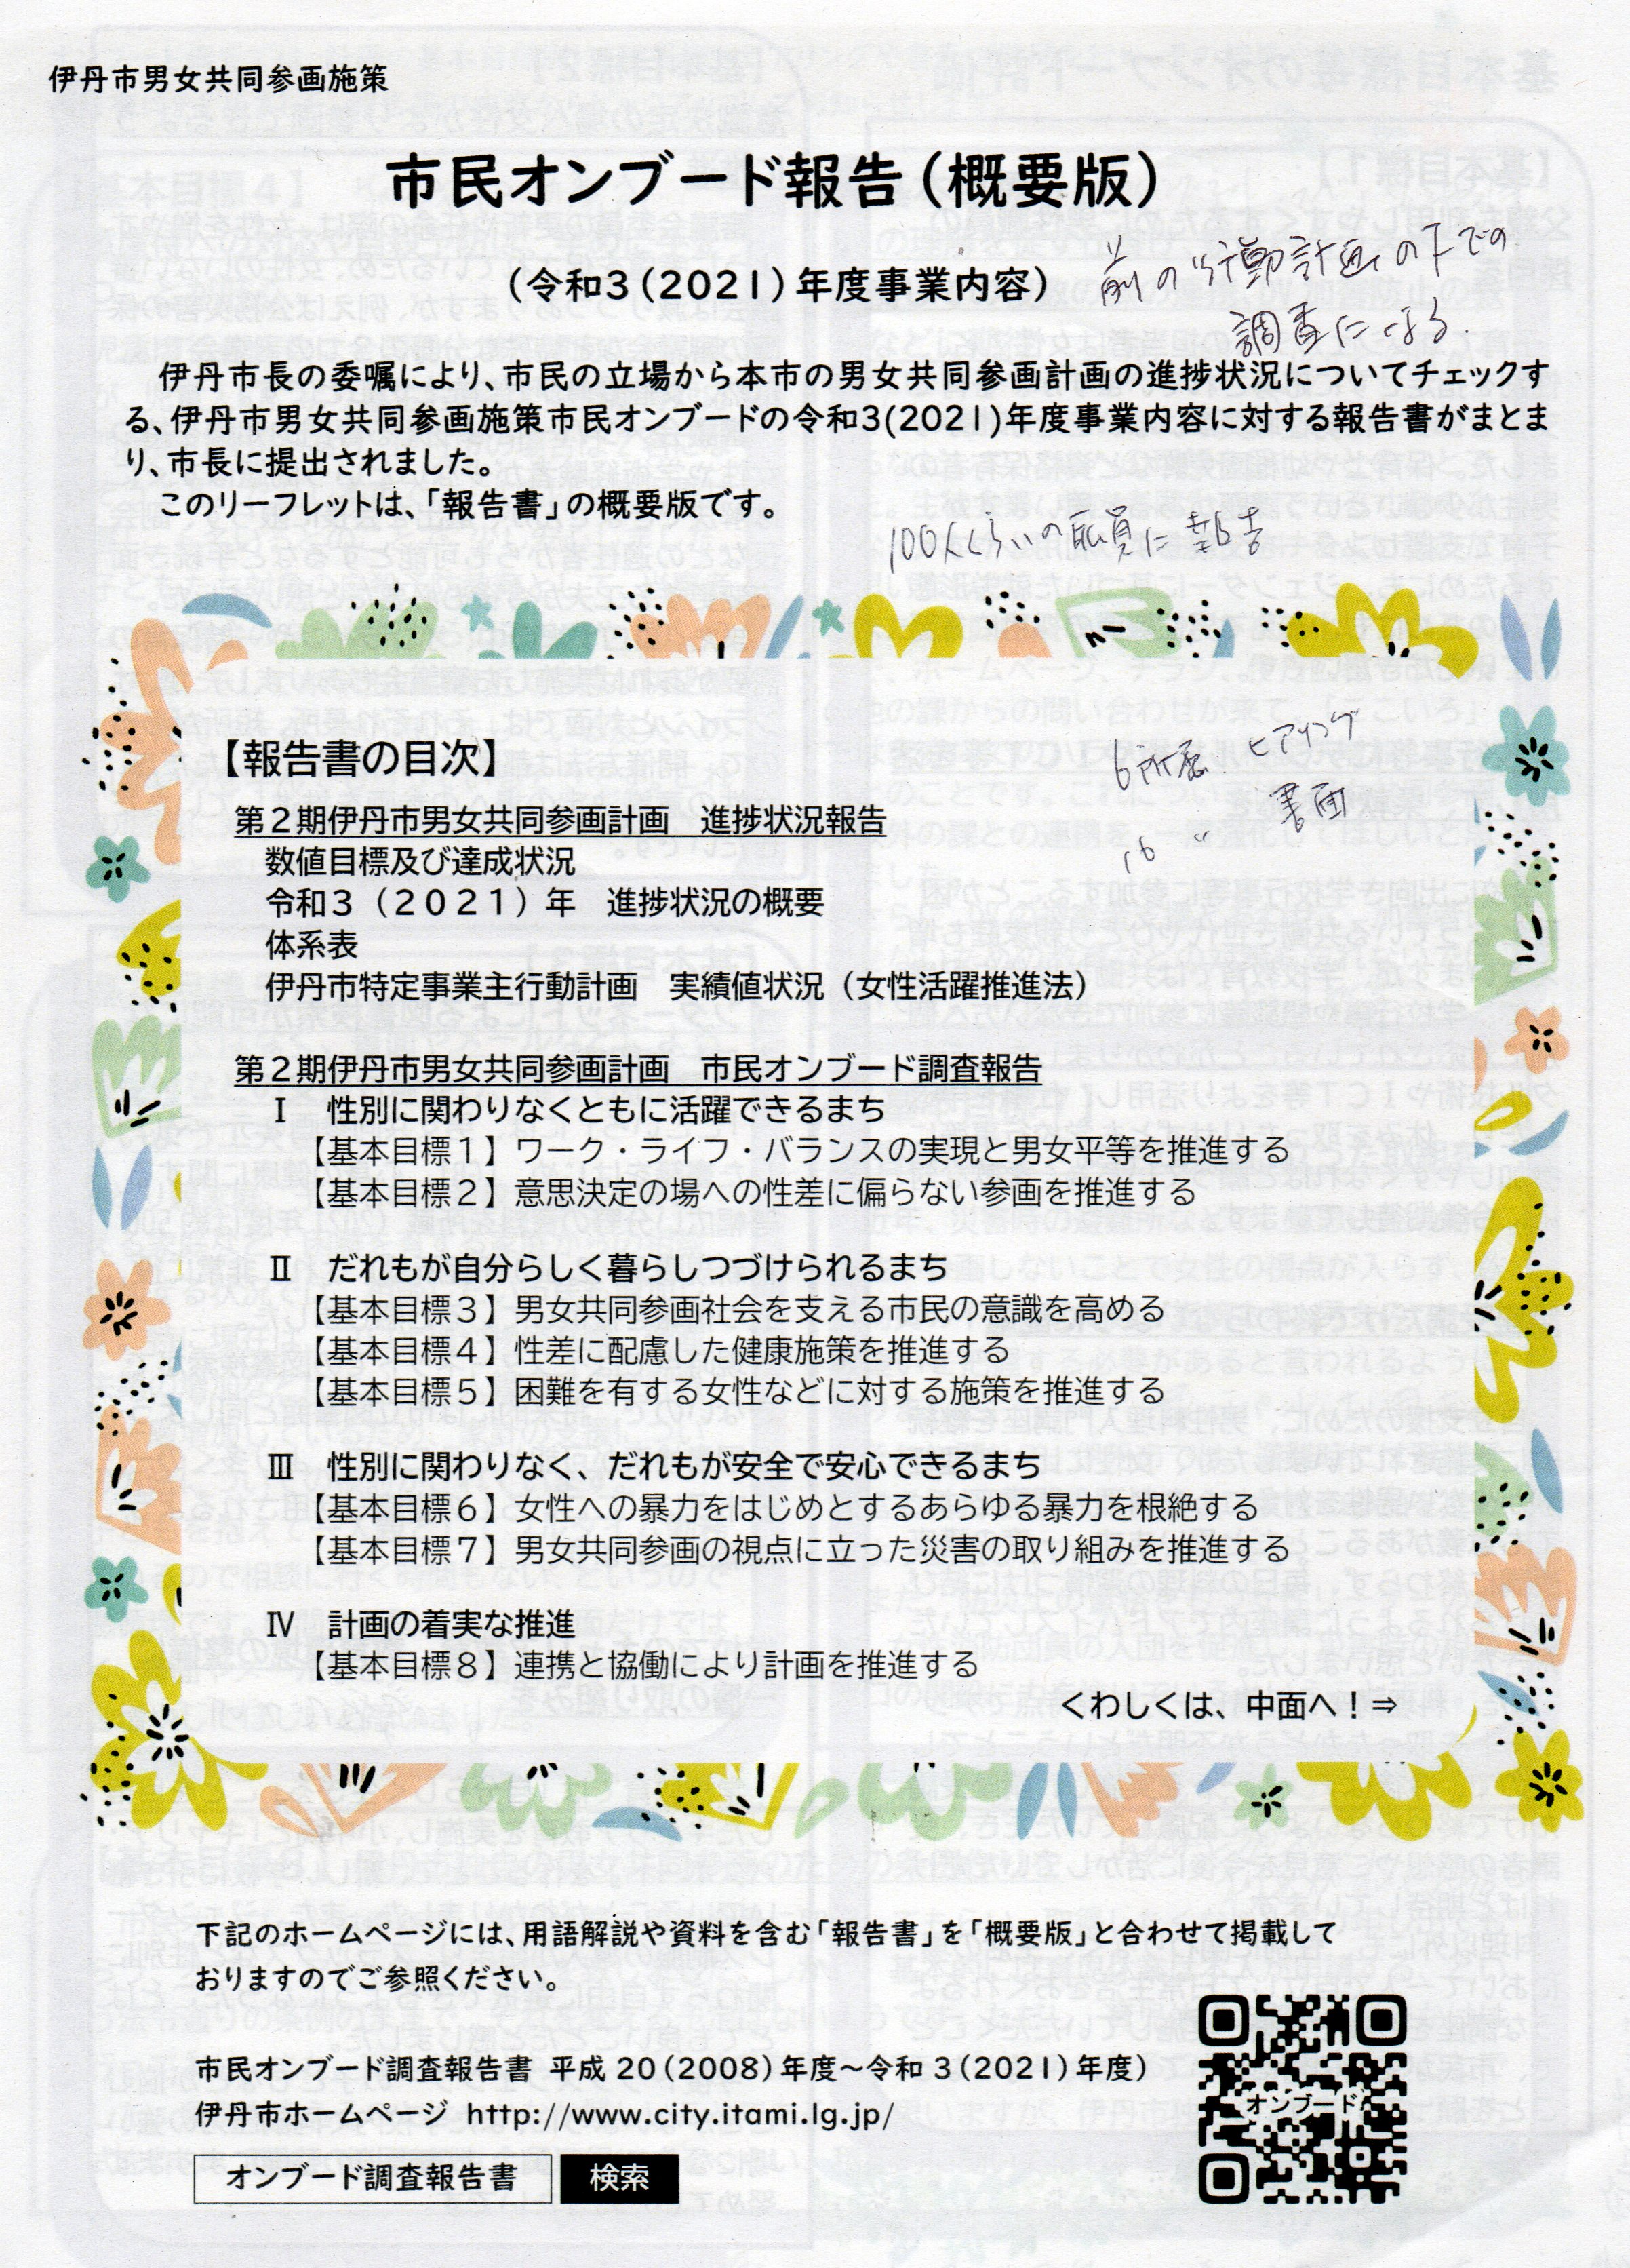 伊丹市男女共同参画施策
市民オンブード報告（概要版）
（令和3（2021）年度事業内容）
前の行動計画の下での
調査になる.
伊丹市長の委嘱により、市民の立場から本市の男女共同参画計画の進捗状況についてチェックす
る、伊丹市男女共同参画施策市民オンブードの令和3(2021)年度事業内容に対する報告書がまとま
り、市長に提出されました。
このリーフレットは、「報告書」の概要版です。
100人くらいの職員に報告
6所属 ヒアリング
16 〃 書面
【報告書の目次】
第２期伊丹市男女共同参画計画　進捗状況報告
数値目標及び達成状況
令和３（２０２１）年　進捗状況の概要
体系表
伊丹市特定事業主行動計画　実績値状況（女性活躍推進法）
第２期伊丹市男女共同参画計画　市民オンブード調査報告
Ⅰ　性別に関わりなくともに活躍できるまち
【基本目標１】ワーク・ライフ・バランスの実現と男女平等を推進する
【基本目標２】意思決定の場への性差に偏らない参画を推進する
Ⅱ　だれもが自分らしく暮らしつづけられるまち
【基本目標３】男女共同参画社会を支える市民の意識を高める
【基本目標４】性差に配慮した健康施策を推進する
【基本目標５】困難を有する女性などに対する施策を推進する
Ⅲ　性別に関わりなく、だれもが安全で安心できるまち
【基本目標６】女性への暴力をはじめとするあらゆる暴力を根絶する
【基本目標７】男女共同参画の視点に立った災害の取り組みを推進する
Ⅳ　計画の着実な推進
【基本目標８】連携と協働により計画を推進する
くわしくは、中面へ！⇒
下記のホームページには、用語解説や資料を含む「報告書」を「概要版」と合わせて掲載して
おりますのでご参照ください。
市民オンブード調査報告書 平成 20（2008）年度～令和 3（2021）年度）
伊丹市ホームページ http://www.city.itami.lg.jp/
オンブード調査報告書 検索
オンブード